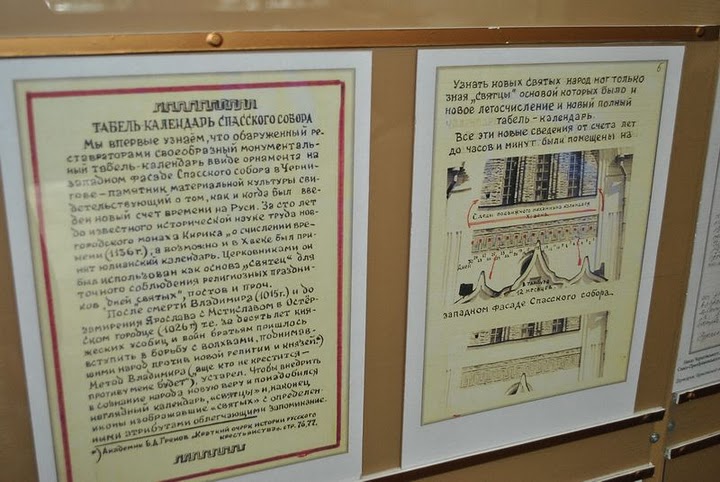 ТАБЕЛЬ-КАЛЕНДАРЬ СПАССКОГО СОБОРА
Мы впервые узнаём, что обаруженный ре-
ставраторами своеобразный монументаль-
ный табель-календарь ввиде орнамента на
западном фасаде Спасского собора в Черни-
гове - памятник материальной культуры сви-
детельствующий о том, как и когда был вве-
ден новый счет времени на Руси. За сто лет
до известного исторической науке труда нов-
городского монаха Кирика „о счислении вре-
мени (1136г.), а возможно и в Киеве был при-
нят юлианский календарь. Церковниками он
был использован как основа „Святец" для
точного соблюдения религиозных праздни-
ков „дней святых", постов и проч.
После смерти Владимира (1015г.) и до
замирения Ярослава с Мстиславом в Остёр-
ском городце (1026г) т.е. за десять лет кня-
жеских усобиц и войн братьям пришлось
вступить в борьбу с волхвами, поднимав-
шими народ против новой религии и князей*)
Метод Владимира („аще кто не крестится -
противу мене будет"), устарел. Чтобы внедрить
в сознание народа новую веру и понадобился
наглядный календарь, „святцы" и, наконец,
иконы изображавшие „святых" с определен-
ными атрибутами облегчающими запоминание.
*) Академик Б.Д. Греков „Краткий очерк истории русского
крестьянства", стр. 76,77.
6
Узнать новых святых народ мог только
зная „Святцы" основой которых было и
новое летосчисление и новый полный
табель-календарь.
Все эти новые сведения от счета лет
до часов и минут были помещены на
Следы подвижного механизма календаря
Дней
12 месяцев
западном фасаде Спасского собора.